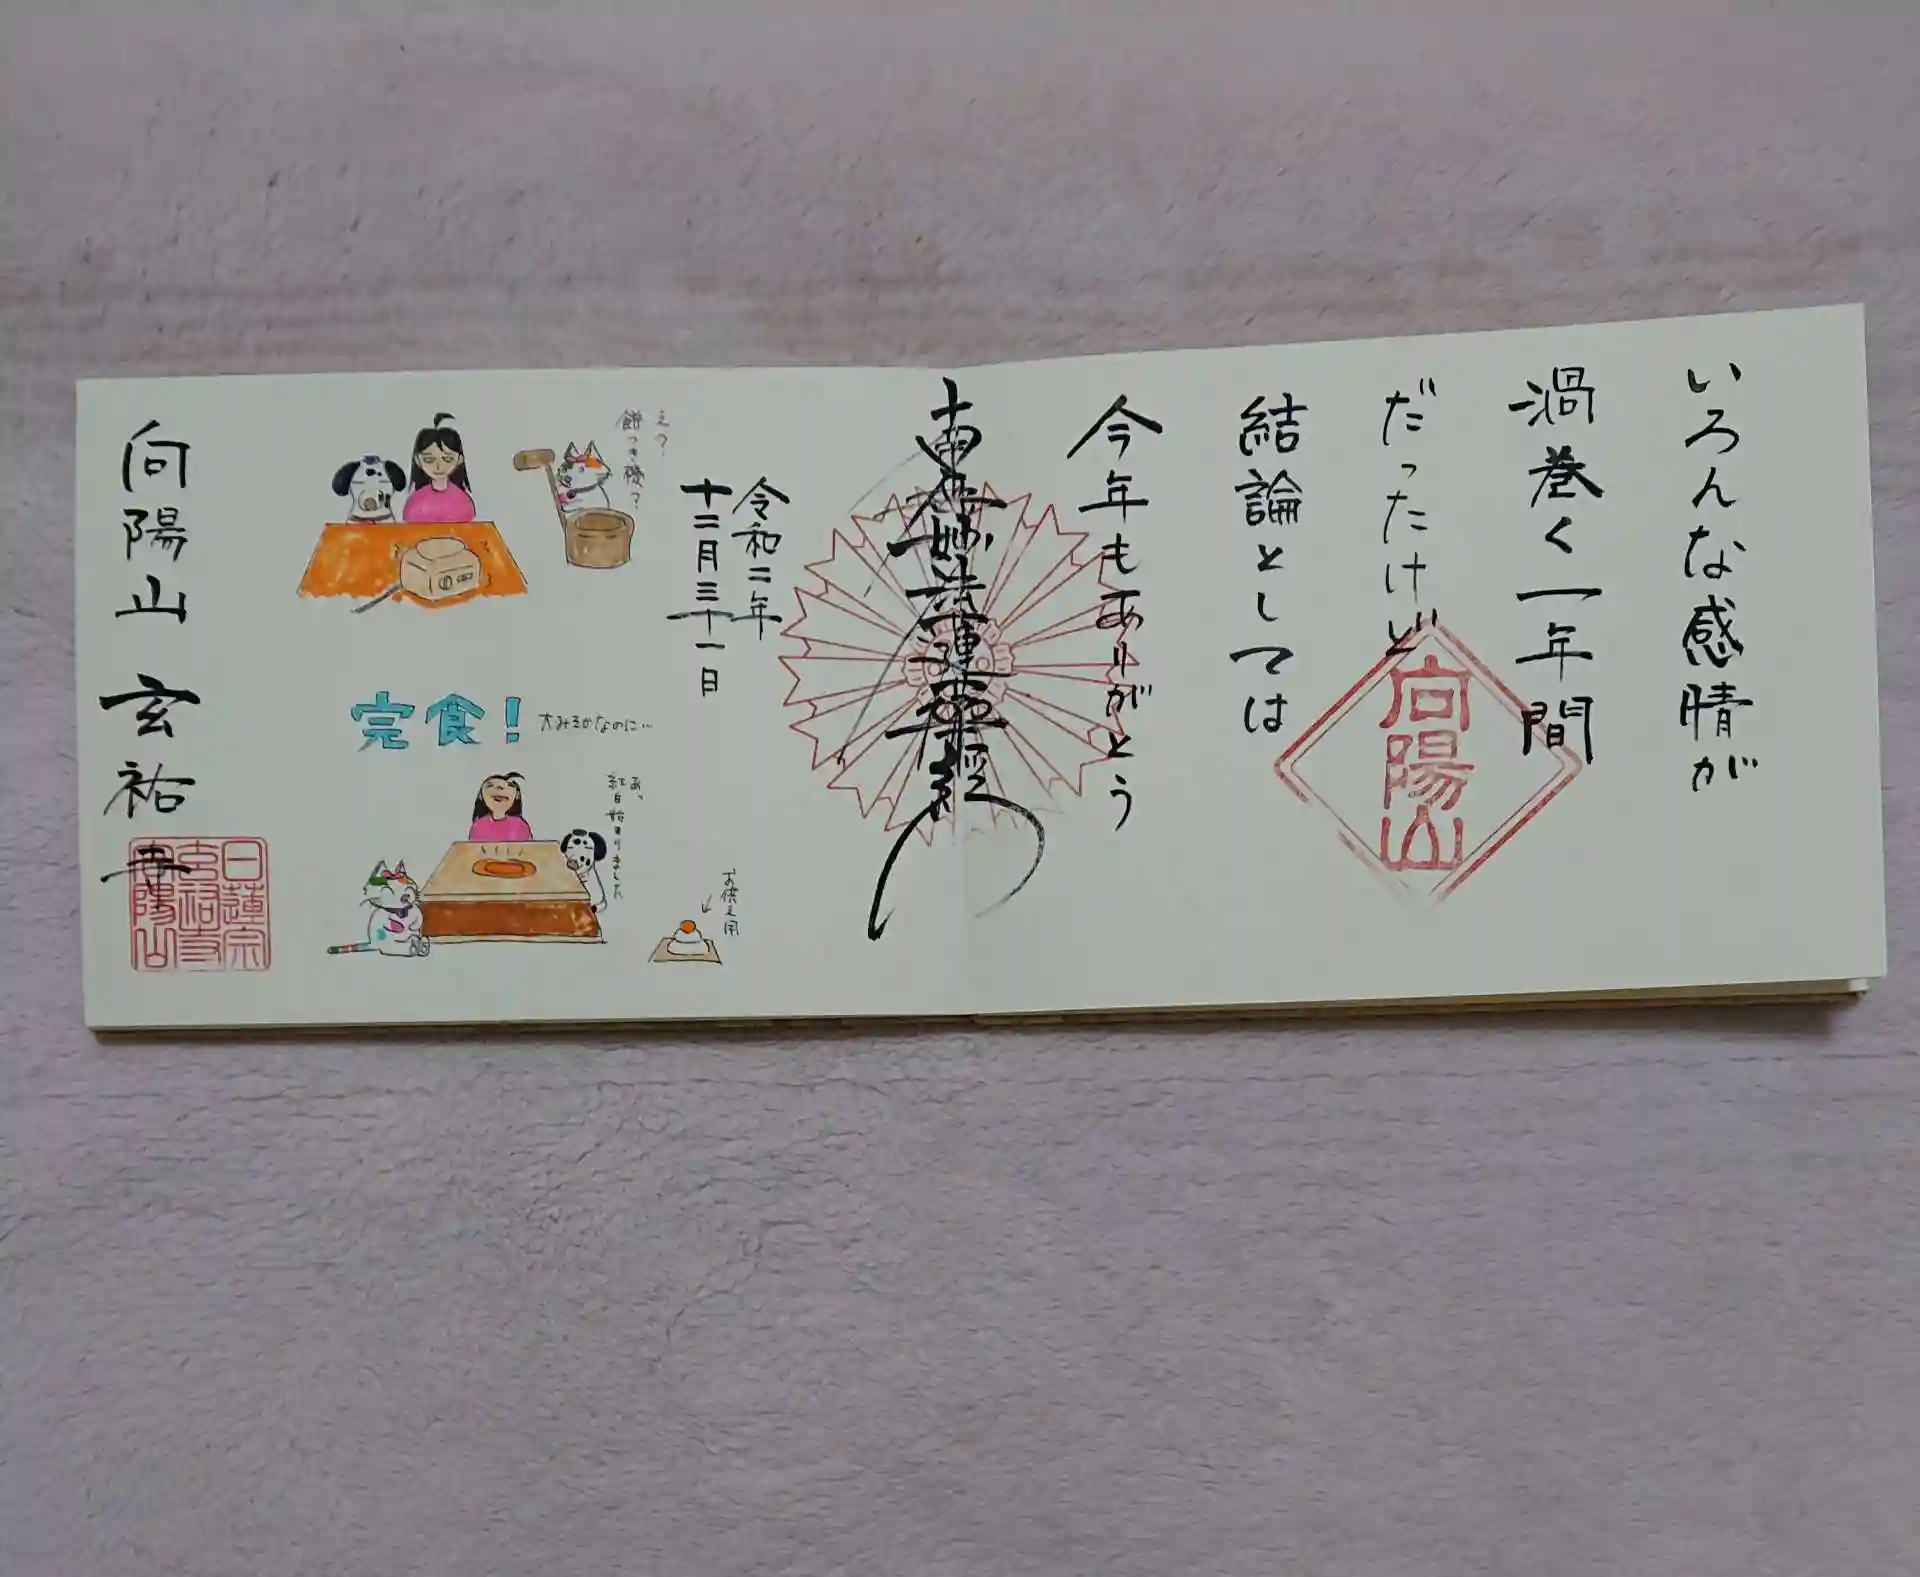 いろんな感情が
渦巻く一年間
だったけど
結論としては
今年もありがとう
向陽山
南無妙法蓮華経
令和二年
十二月三十一日
え?
餅つき機?
完食!
大みそかなのに…
あっ、
紅白始まりました
お供え用
向陽山 玄祐寺
日蓮宗
玄祐寺
向陽山